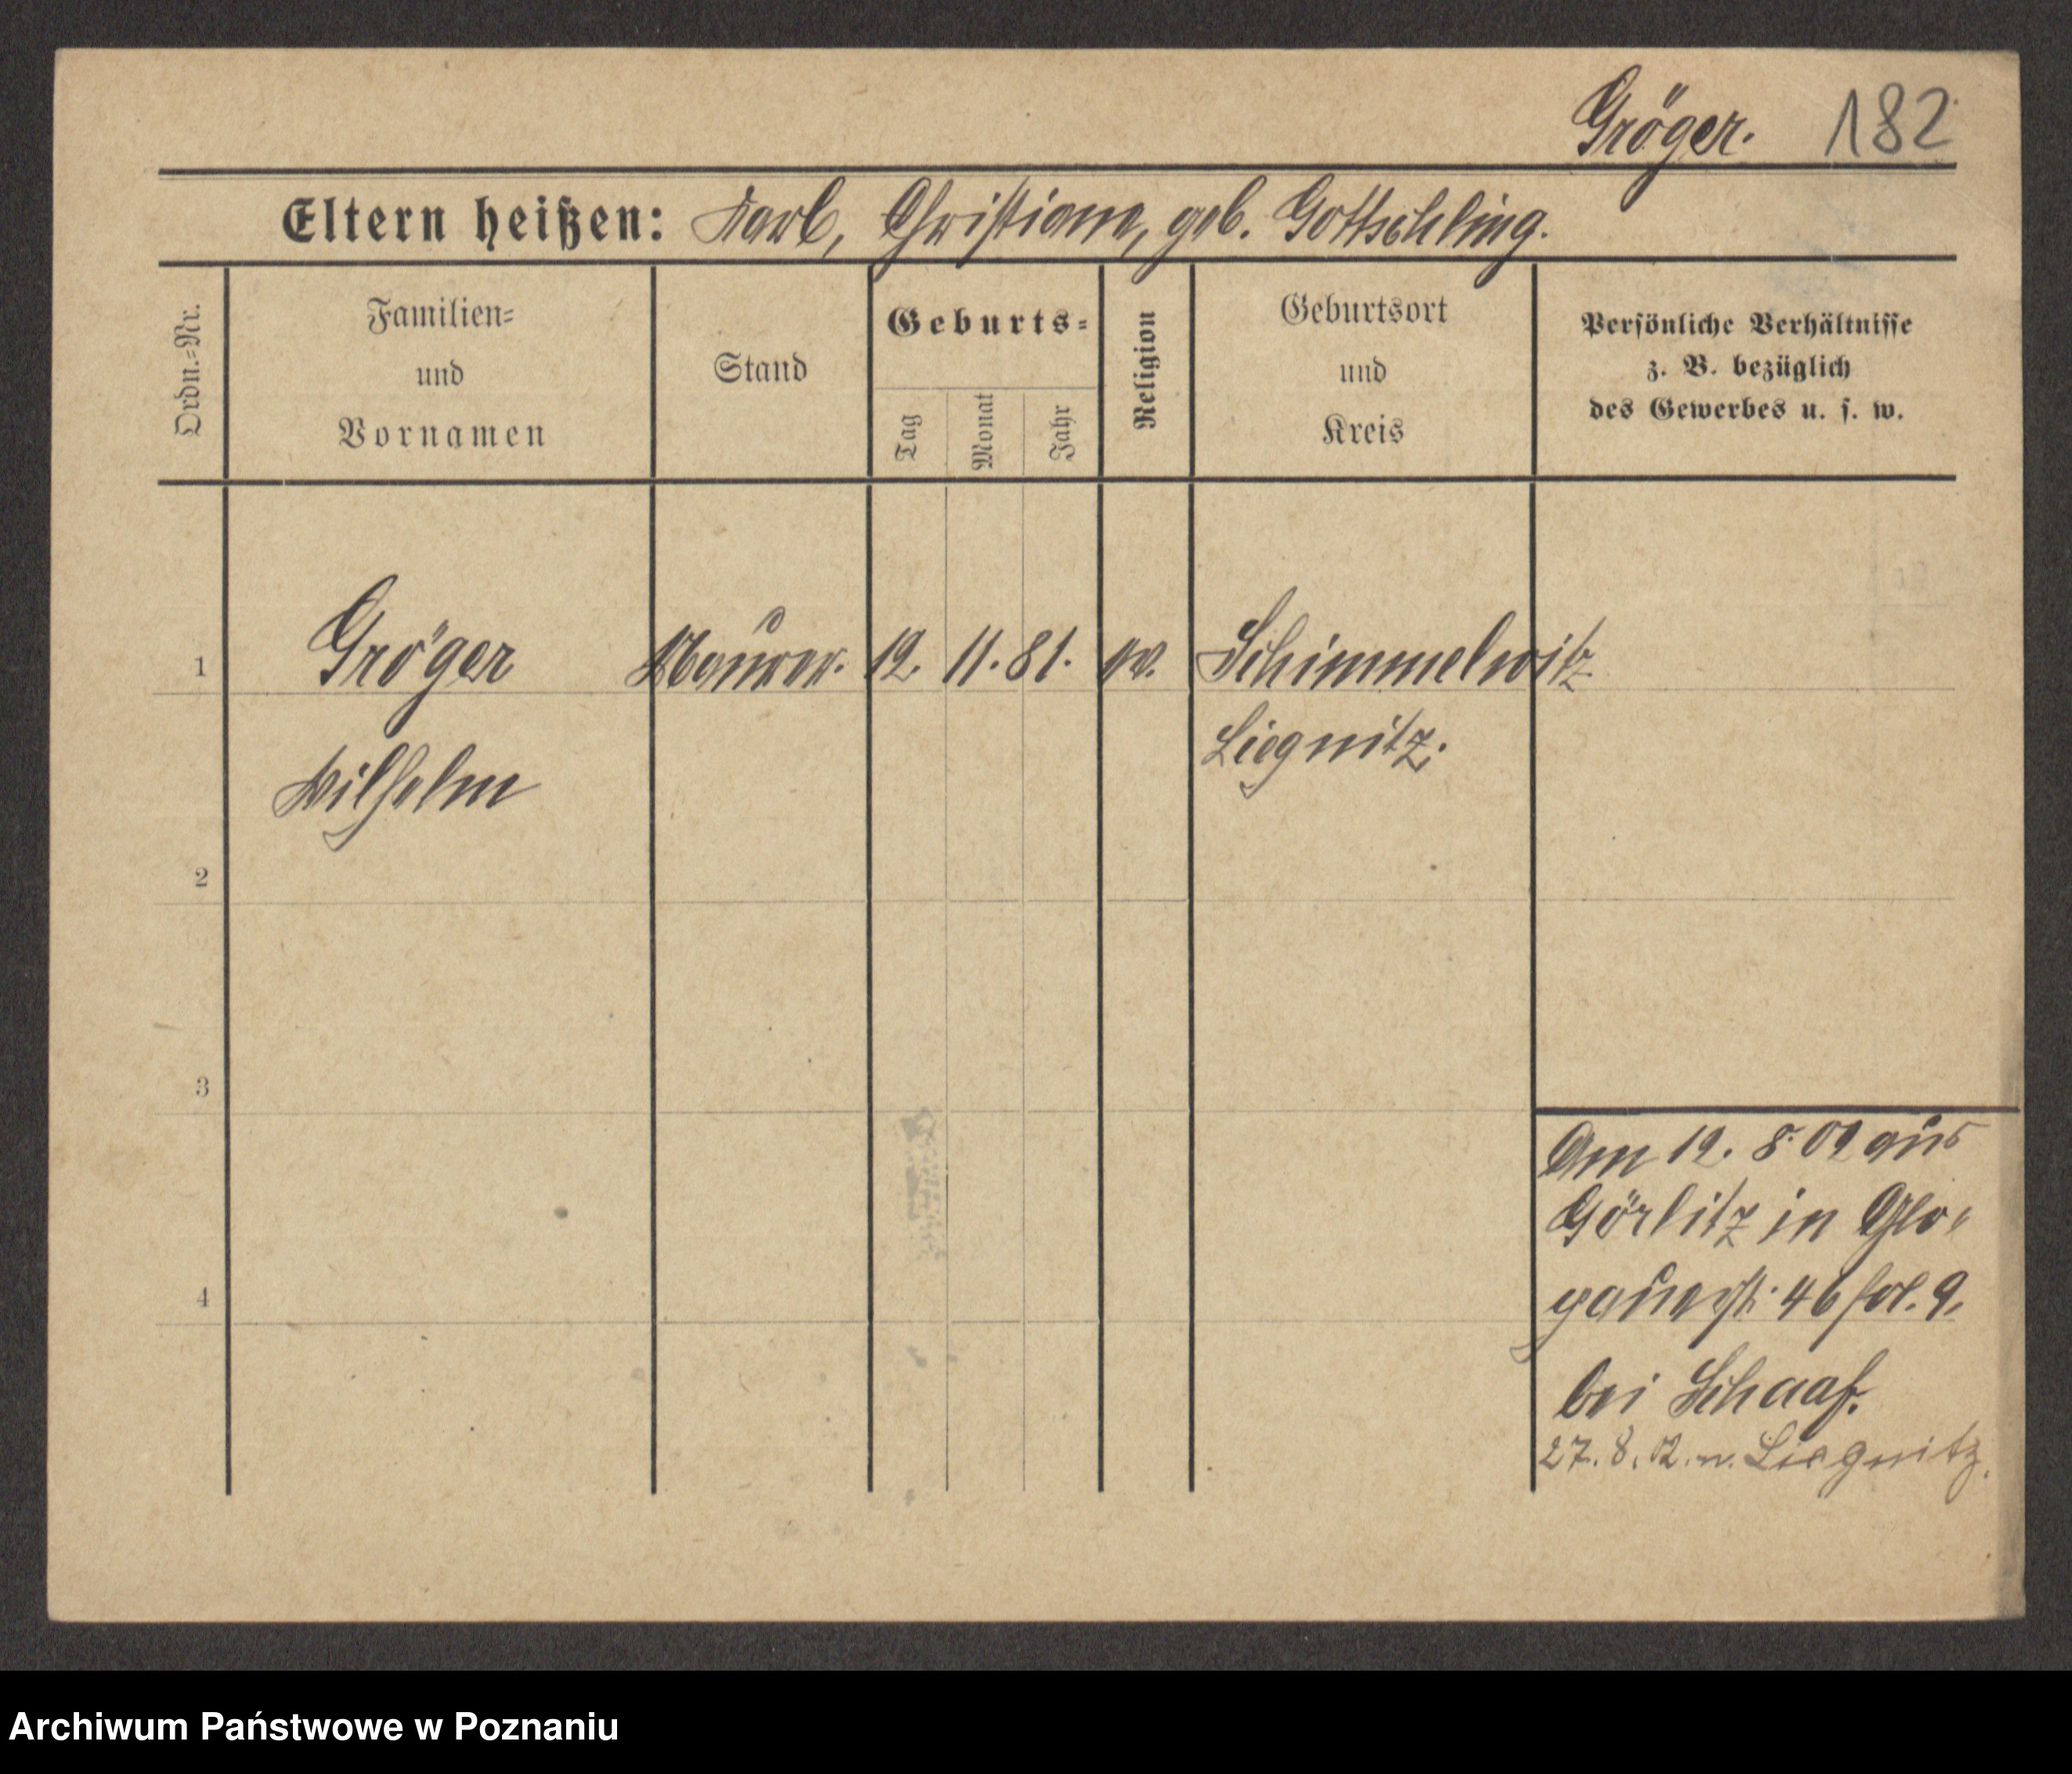 Gröger. 182
Eltern heißen: Karl, Christiane, geb. Gottschling.
Ordn.=Nr.
Familien=
und
Vornamen
Stand
Geburts=
Tag
Monat
Jahr
Religion
Geburtsort
und
Kreis
Persönliche Verhältnisse
z. B. bezüglich
des Gewerbes u. s. w.
1 Gröger Maurer. 12. 11. 81. ev. Schimmelwitz
Wilhelm Liegnitz.
2
3
4
Am 12. 8. 02 aus
Görlitz in Glo=
gauerstr. 46 fol. 9.
bei Schaaf.
27. 8. 02. n. Liegnitz.
Archiwum Państwowe w Poznaniu